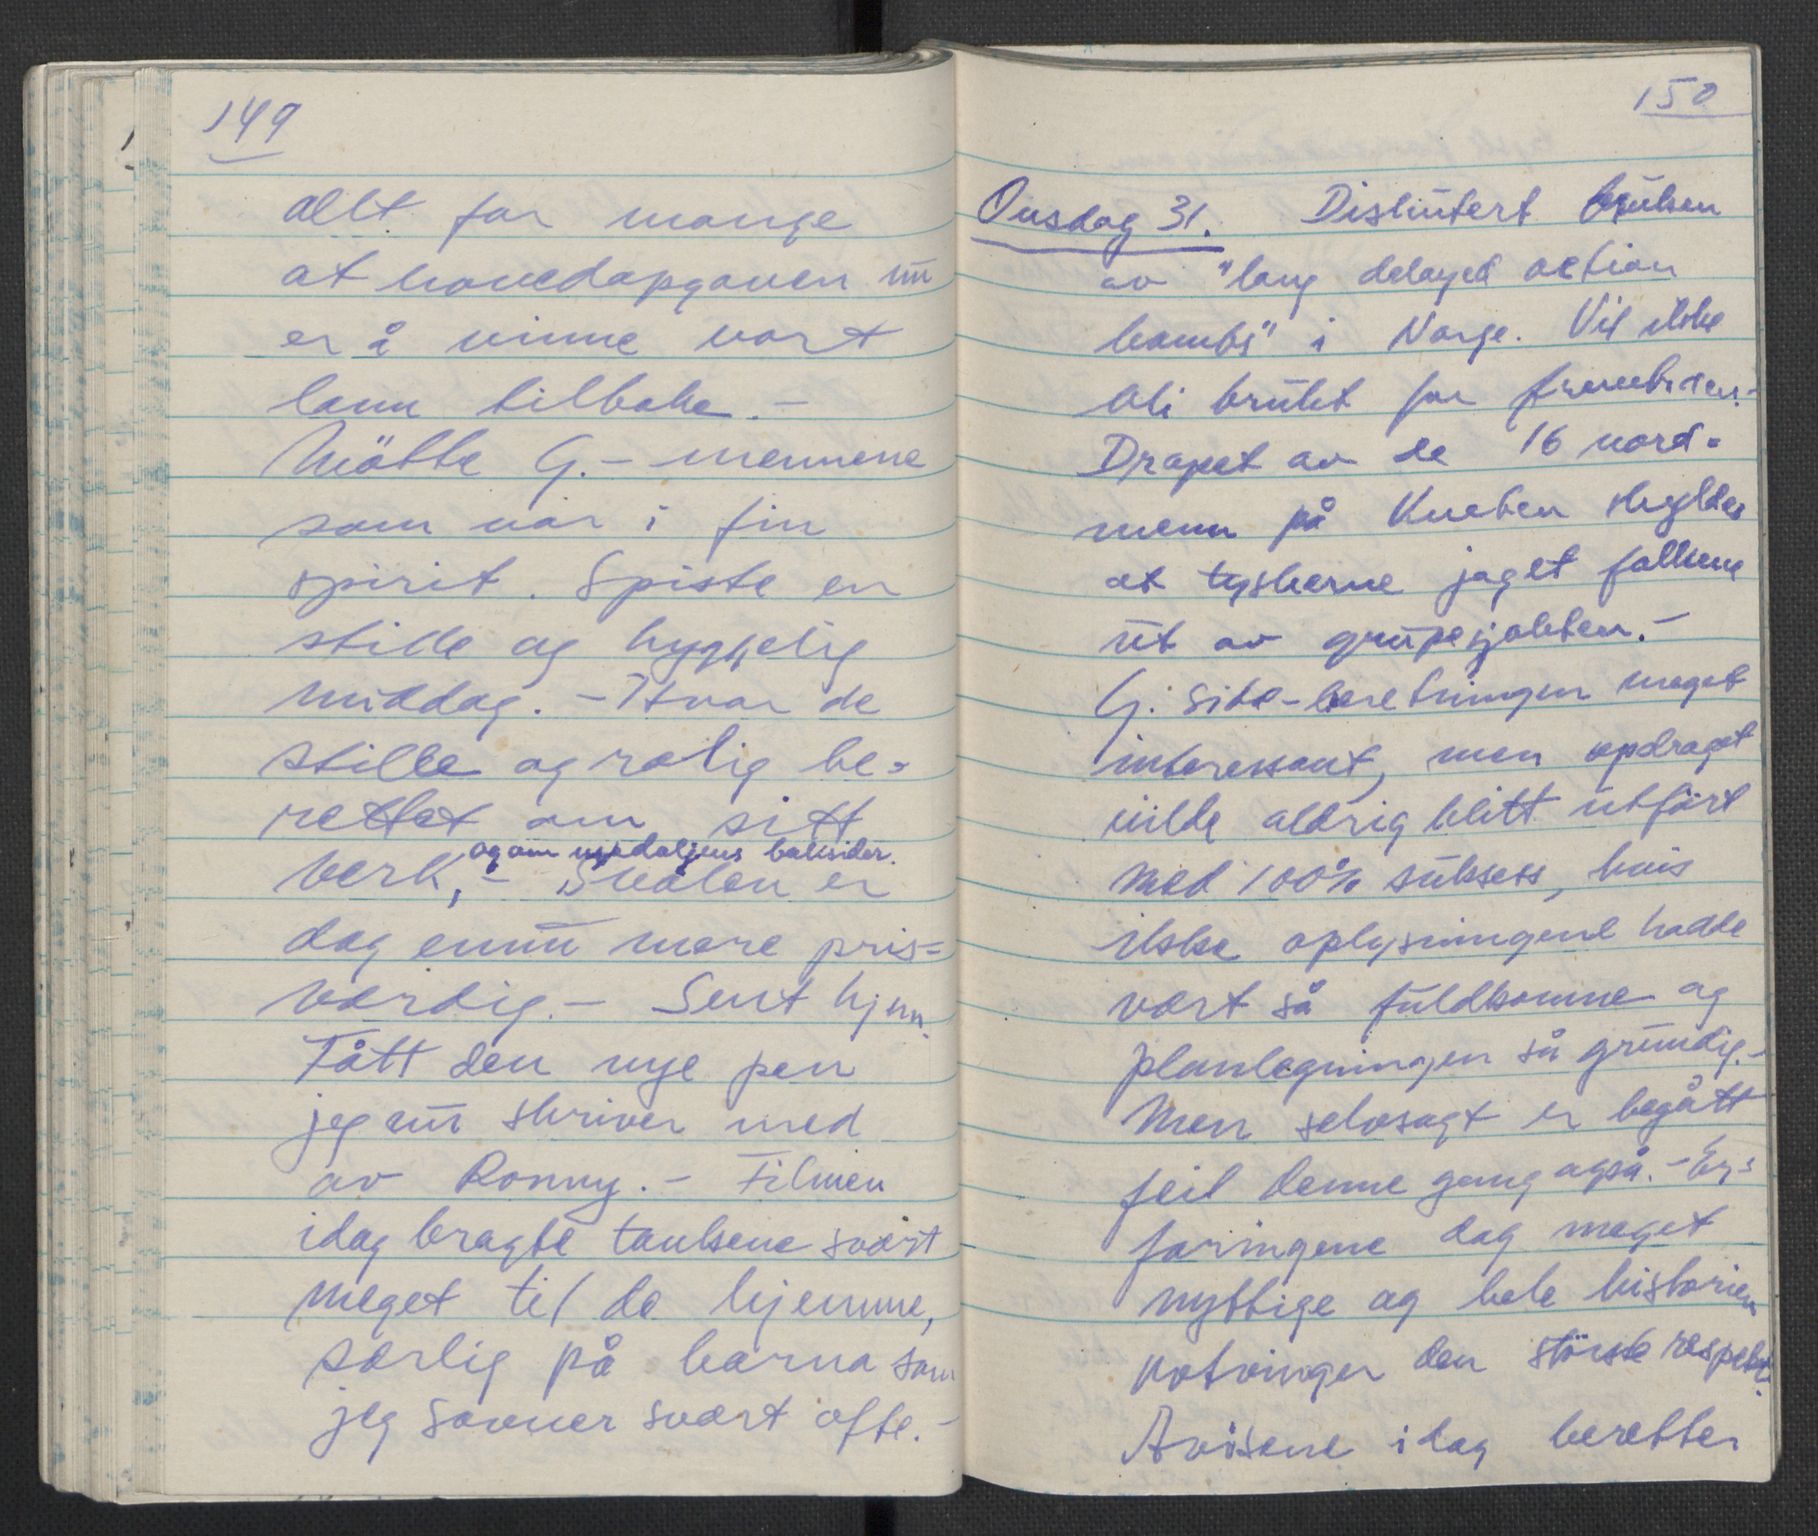 149
allt for mange
at hovedopgaven nu
er å vinne vort
lann tilbake. –
Mötte G. – mennene
som var i fin
spirit. Spiste en
stille og hyggelig
middag. – Hvor de
stille og rolig be=
rettet om sitt
og om medaljens baksider.
verk, – Skålen er
dog ennu mere pris=
verdig. – Sent hjem.
Fått den nye pen
jeg nu skriver med
av Ronny. – Filmen
idag bragte tankene svært
meget til de hjemme,
særlig på barna som
jeg savner svært ofte. –
150
Onsdag 31. Diskutert bruken
av "long delayed action
bombs" i Norge. Vil ikke
bli brukt for fremtiden. –
Drapet av de 16 nord=
menn på Kneben skyldes
at tyskerne jaget folkene
ut av gruvesjakten. –
G. side-beretningen meget
interessant, men opdraget
vilde aldrig blitt utfört
med 100% suksess, hvis
ikke oplysningene hadde
vært så fuldkomne og
planlegningen så grundig. –
Men selvsagt er begått
feil denne gang også. – Er=
faringene dog meget
nyttige og hele historien
avtvinger den störste respekt.
Avisene idag beretter